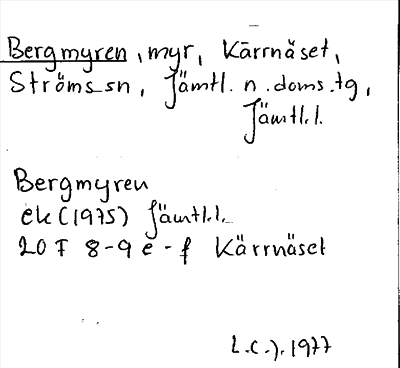 Bergmyren, myr, Kärrnäset,
Ströms sn, Jämtl. n. doms.tg,
Jämtl.l.
Bergmyren
ek (1975) Jämtl.l.
20 F 8-9 e - f Kärrnäset
L.C.J. 1977